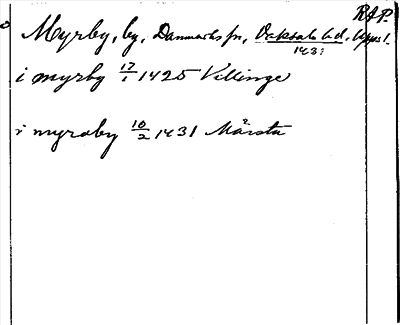 RAP.
Myrby, by, Danmarks sn, Vaksala hd. Upps l.
1431
i myrby 17/1 1425 Vellinge
i myraby 10/2 1431 Märsta